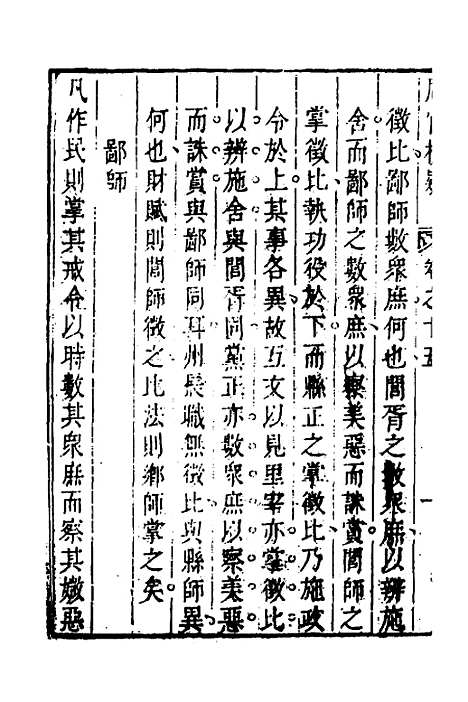 徵比鄙師數眾庶何也閭胥之數眾庶以辨施
舍而鄙師之數眾庶以察美惡而誅賞閭師之
掌徵比執功役於下而縣正之掌徵比乃施政
令於上其事各異故互文以見里宰亦掌徵比
以辨施舍與閭胥同黨正亦數眾庶以察美惡
而誅賞與鄙師同耳州長職無徵比與縣師異
何也財賦則閭師徵之比法則鄉師掌之矣
鄙師
凡作民則掌其戒令以時數其眾庶而察其媺惡